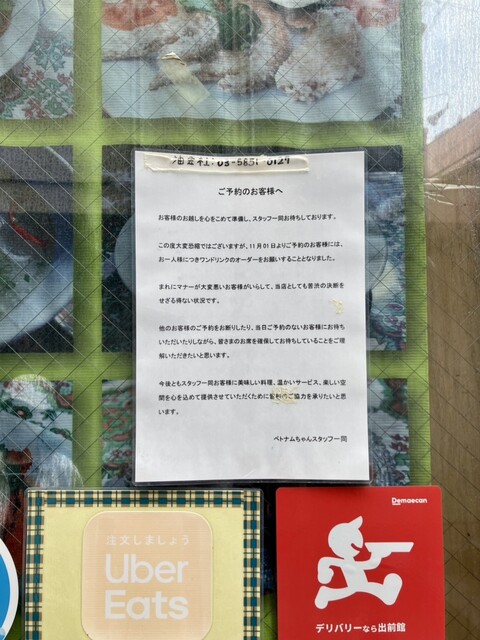 油会社:03-5851-0129
ご予約のお客様へ
お客様のお越しを心をこめて準備し、スタッフ一同お待ちしております。
この度大変恐縮ではございますが、11月01日よりご予約のお客様には、
お一人様につきワンドリンクのオーダーをお願いすることとなりました。
まれにマナーが大変悪いお客様がいらして、当店としても苦渋の決断を
せざる得ない状況です。
他のお客様のご予約をお断りしたり、当日ご予約のないお客様にお待ち
いただいたりしながら、皆さまのお席を確保してお待ちしていることをご理
解いただきたいと思います。
今後ともスタッフ一同お客様に美味しい料理、温かいサービス、楽しい空
間を心を込めて提供させていただくために皆様のご協力を承りたいと思
います。
ベトナムちゃんスタッフ一同
注文しましょう
Uber
Eats
Demaecan
デリバリーなら出前館